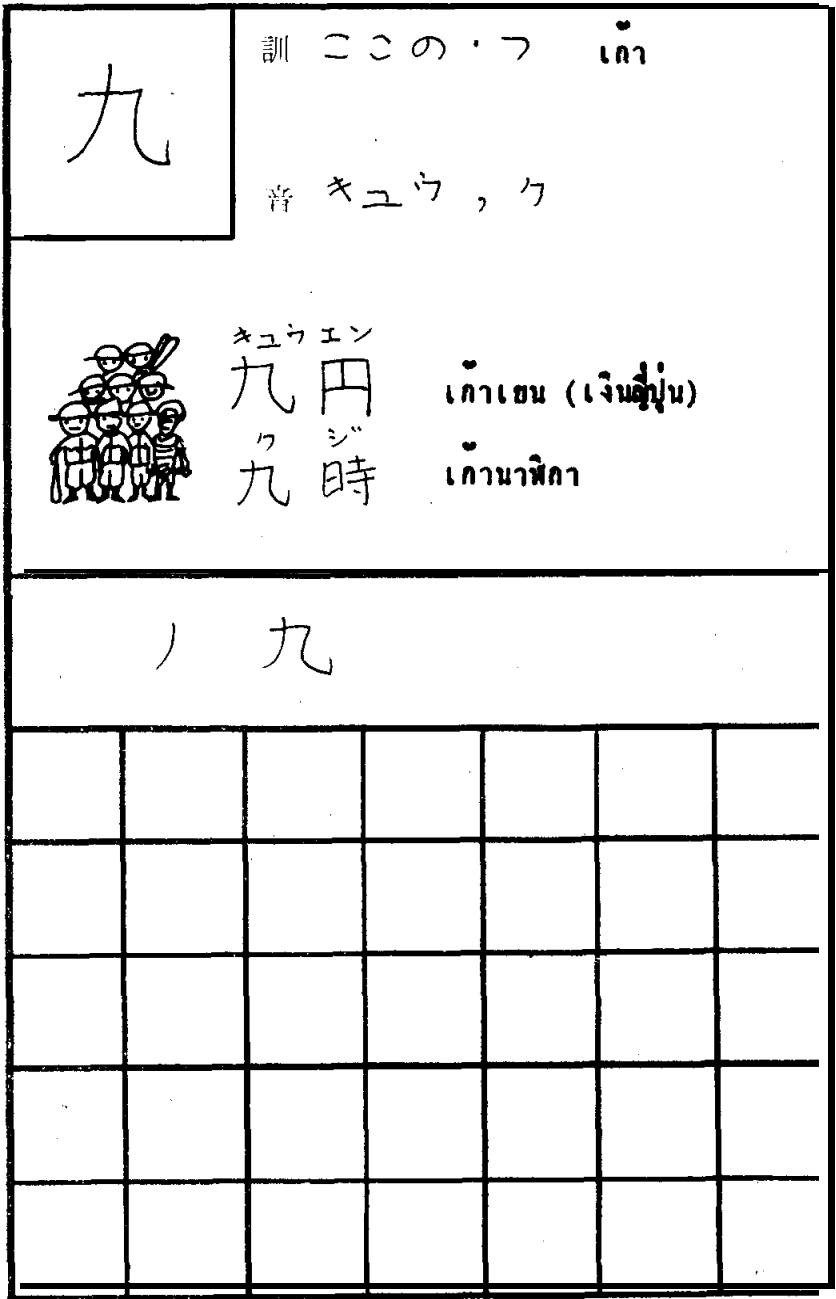 九
訓 ここの・つ เก้า
音 キュウ , ク
キュウエン
九円 เก้าเยน (เงินญี่ปุ่น)
ク ジ
九時 เก้านาฬิกา
ノ 九